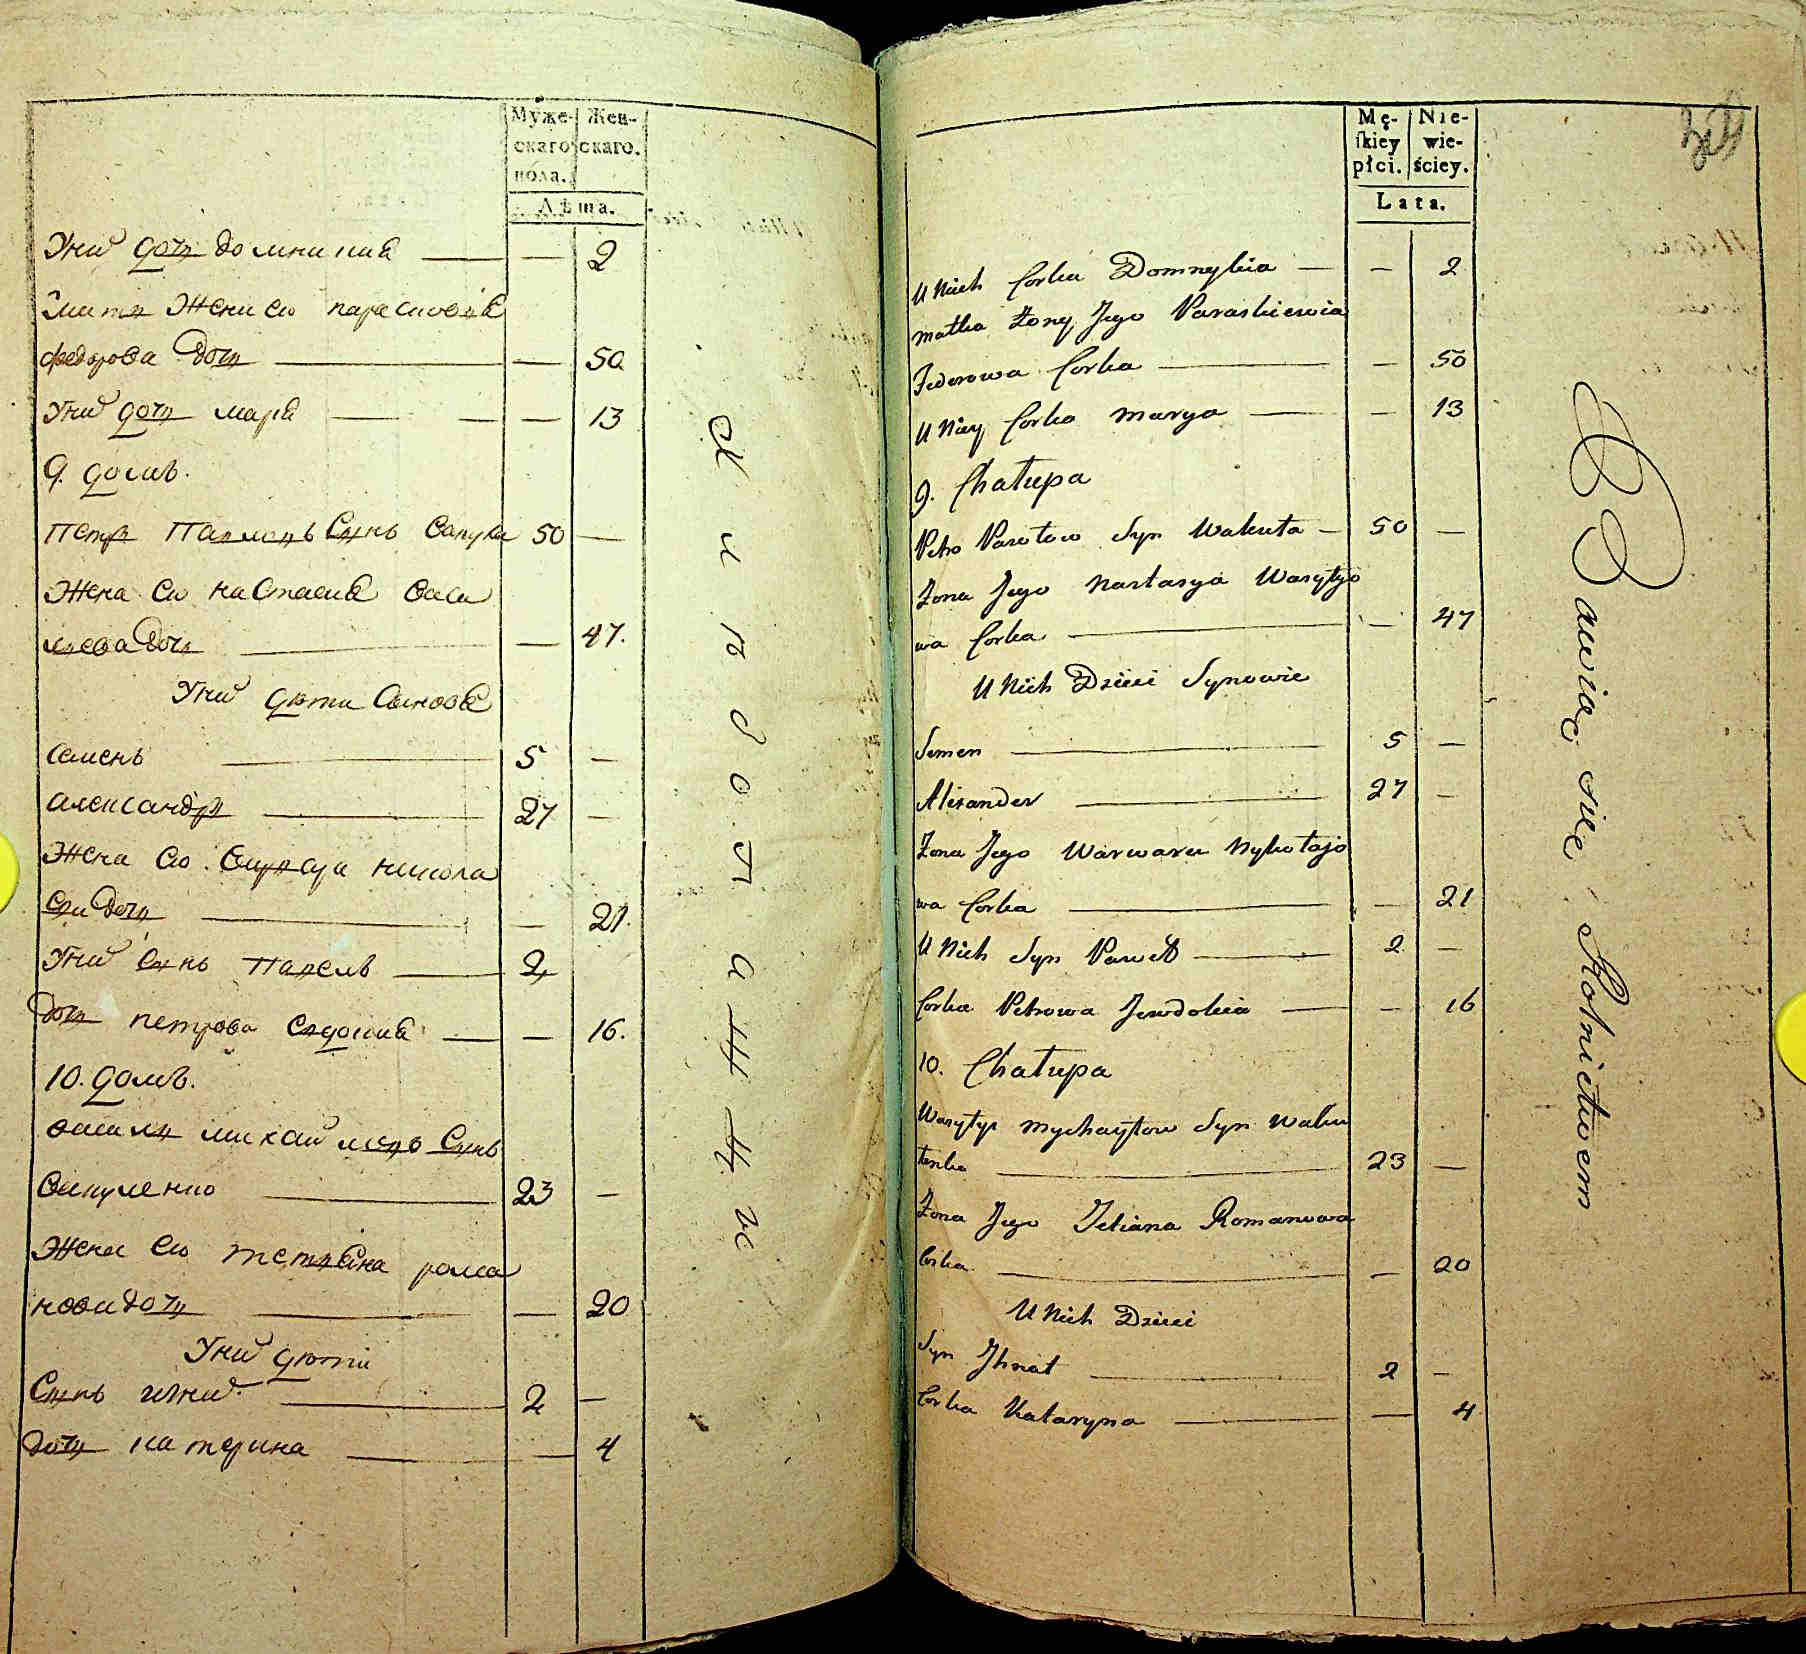 Муже- Жен-
скаго скаго.
пола.
Лѣта.
Уних дочь домникия — — 2
федорова дочь — — 50
Уних дочь мария — — 13
9. домъ.
Петръ Павловъ Сынъ 50 —
Жена его настасия васи
лиева дочь — — 47.
Уних дѣти Сынове
Семенъ — 5 —
александръ — 27 —
Жена его варвара никола
ева дочь — — 21.
Уних Сынъ Павелъ — 2
дочь петрова евдокия — — 16.
10. домъ.
василь михайловъ Сынъ
вакуленко — 23 —
Жена его татияна рома
нова дочь — — 20
Уних дѣти
Сынъ игнат — 2 —
дочь катерина — — 4
Хлѣбопашци
Mę- Nie-
ſkiey wie-
płci. ściey.
Lata.
U Nich Corka Domnykia — — 2
matka Żony Jego Paraskiewia
Fedorowa Corka — — 50
U Niey Corka Marya — — 13
9. Chałupa
Petro Pawłow Syn Wakuła — 50 —
Żona Jego Nastasya Wasyłyo
wa Corka — — 47
U Nich Dzieci Synowie
Semen — 5 —
Alexander — 27 —
Żona Jego Warwara Nykołajo
wa Corka — — 21
U Nich Syn Paweł — 2 —
Corka Petrowa Jewdokia — — 16
10. Chałupa
Wasyłyi Mychayłow Syn Waku
łenko — 23 —
Żona Jego Tetiana Romanowa
Corka — — 20
U Nich Dzieci
Syn Ihnat — 2 —
Corka Kataryna — — 4
Bawią się Rolnictwem